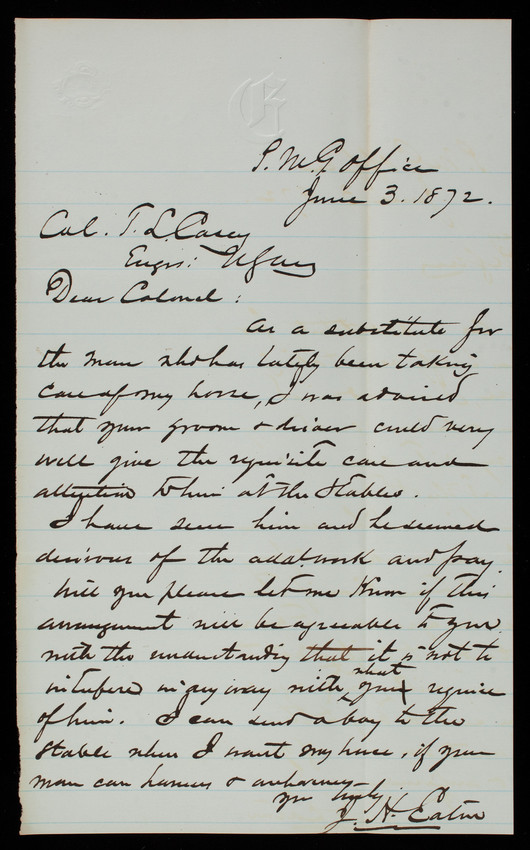 P.M.G. Office
June 3. 1872.
Col. T. L. Casey
Engrs: U.S. Army
Dear Colonel:
As a substitute for
the man who has lately been taking
care of my horse, I was advised
that your groom & driver could very
well give the requisite care and
attention to him at the stables.
I have seen him and he seemed
desirous of the addt. work and pay.
Will you please let me know if this
arrangement will be agreeable to you
with the understanding that it is not to
interfere in any way with what you require
of him. I can send a boy to the
stable when I want my horse, if your
man can harness & unharness
yrs truly
J. H. Eaton